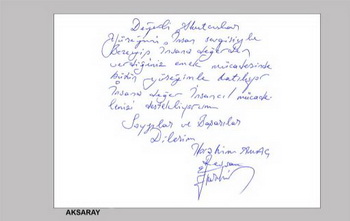 Değerli
Yüreğini İnsan sevgisiyle
Bezeyip İnsana değer
verdiğiniz emek mücadelesinde
bütün yüreğimle katılıyor
İnsana değer İnsancıl mücade-
lenizi destekliyorum
Saygılar ve Başarılar
Dilerim
AKSARAY